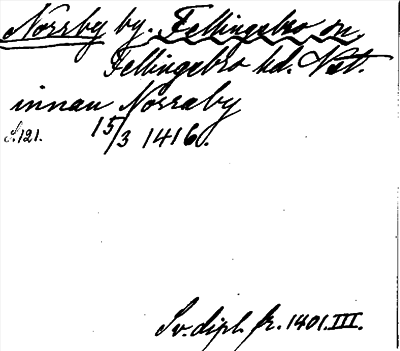 Norrby by. Fellingsbro sn
Fellingsbro hd. Väst.
innan Norraby
S.121. 15/3 1416.
Sv. dipl. fr. 1401. III.